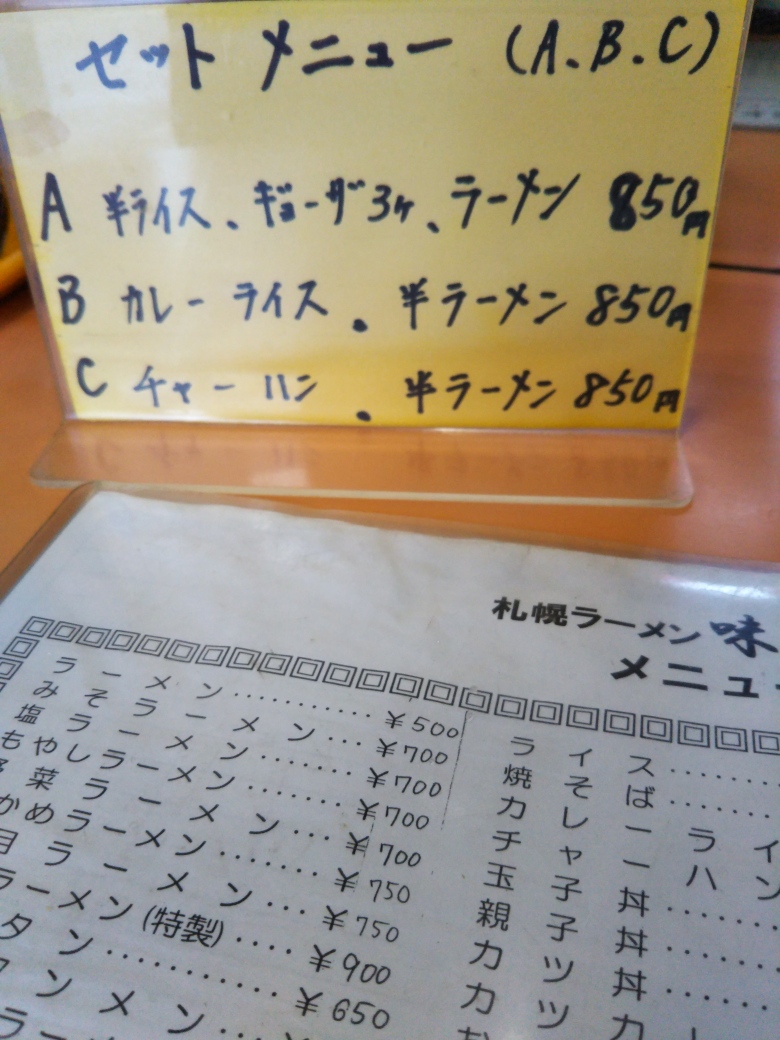 セット メニュー (A、B、C)
A 半ライス、ギョーザ3ヶ、ラーメン 850円
B カレーライス、半ラーメン 850円
C チャーハン、半ラーメン 850円
札幌ラーメン 味
メニュー
ラーメン…………¥500
みそラーメン…¥700
塩ラーメン………¥700
もやしラーメン……¥700
菜ラーメン…¥700
かめラーメン……¥750
月ラーメン…¥750
ラーメン(特製)…¥900
タン…………¥650
ンメン…¥
ラー
ライス……
焼そば……
カレーライ
チャーハン
玉子丼……
親子丼……
カツ丼……
カツカレ